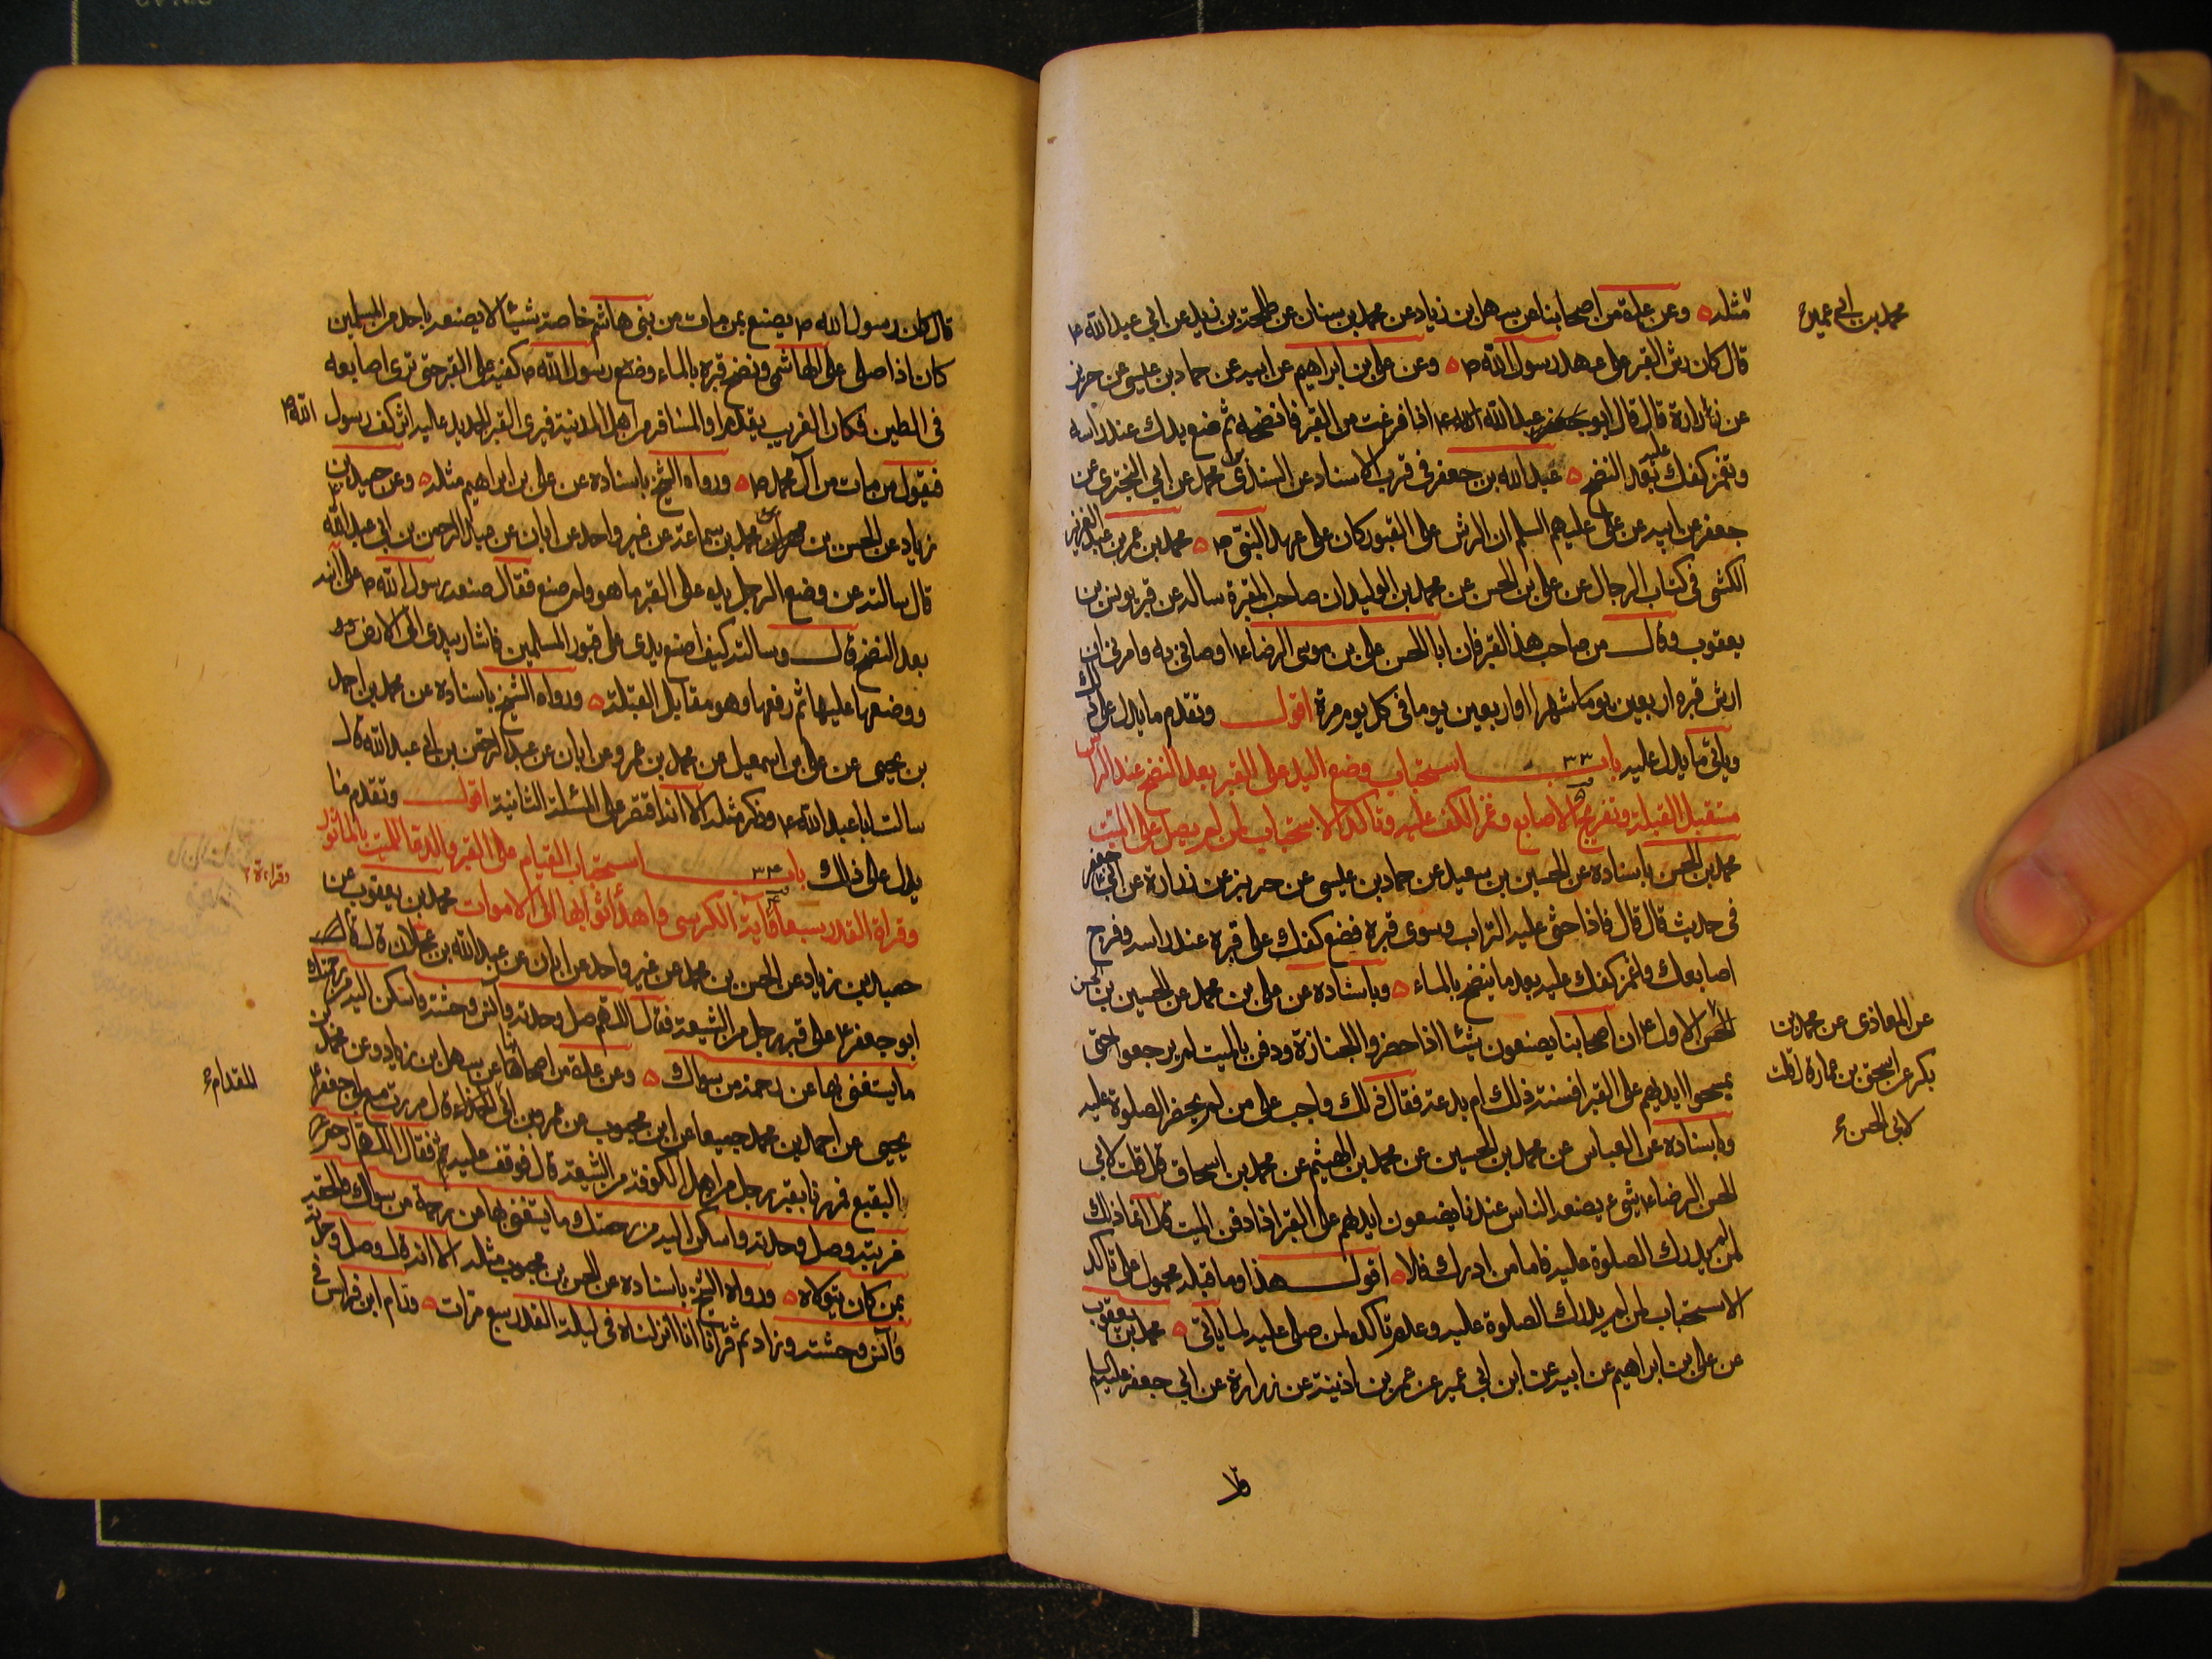 مثله وعن عدة من اصحابنا عن سهل بن زياد عن محمد بن سنان عن طلحة بن زيد عن ابي عبد الله ع
محمد بن ابي عمير
قال كان رش القبر على عهد رسول الله ص وعن علي بن ابراهيم عن ابيه عن حماد بن عيسى عن حريز
عن زرارة قال قال ابو عبد الله ع اذا فرغت من القبر فانضحه ثم ضع يدك عند راسه
وتغمز كفك عليه بعد النضح عبد الله بن جعفر في قرب الاسناد عن السندي بن محمد عن ابي البختري عن
جعفر عن ابيه عن علي عليهم السلم ان الرش على القبور كان على عهد النبي ص محمد بن عمر بن عبد العزيز
الكشي في كتاب الرجال عن علي بن الحسن عن محمد بن الوليد ان صاحب المقبرة ساله عن قبر يونس بن
يعقوب وقال من صاحب هذا القبر فان ابا الحسن علي بن موسى الرضا ع اوصاني به وامرني ان
ارش قبره اربعين يوما شهرا او اربعين يوما في كل يوم مرة اقول وتقدم ما يدل على ذلك
وياتي ما يدل عليه باب ٣٣ استحباب وضع اليد على القبر بعد النضح عند الراس
مستقبل القبلة وتفريج الاصابع وغمز الكف عليه وتاكد الاستحباب لمن لم يصل على الميت
محمد بن الحسن باسناده عن الحسين بن سعيد عن حماد بن عيسى عن حريز عن زرارة عن ابي جعفر ع
في حديث قال قال فاذا حثى عليه التراب وسوى قبره فضع كفك على قبره عند راسه وفرج
اصابعك واغمز كفك عليه بعد ما ينضح بالماء وباسناده عن علي بن محمد عن الحسين بن الحسن
عن المعاذي عن محمد بن
بكر عن اسحق بن عمار قال قلت
لابي الحسن
الاول ع ان اصحابنا يصنعون شيئا اذا حضروا الجنازة ودفن الميت لم يرجعوا حتى
يمسحوا ايديهم على القبر افسنة ذلك ام بدعة فقال ذلك واجب على من لم يحضر الصلوة عليه
وباسناده عن العباس عن محمد بن الحسين عن محمد بن الهيثم عن محمد بن اسحاق قال قلت لابي
الحسن الرضا ع شيء يصنعه الناس عندنا يضعون ايديهم على القبر اذا دفن الميت قال انما ذلك
لمن لم يدرك الصلوة عليه فاما من ادرك فلا اقول هذا وما قبله محمول على تاكد
الاستحباب لمن لم يدرك الصلوة عليه وعدم تاكده لمن صلى عليه لما ياتي محمد بن يعقوب
عن علي بن ابراهيم عن ابيه عن ابن ابي عمير عن عمر بن اذينة عن زرارة عن ابي جعفر عليه السلم
قال كان رسول الله ص يصنع بمن مات من بني هاشم خاصة شيئا لا يصنعه باحد من المسلمين
كان اذا صلى على الهاشمي ونضح قبره بالماء وضع رسول الله ص كفه على القبر حتى ترى اصابعه
في الطين فكان الغريب يقدم او المسافر من اهل المدينة فيرى القبر الجديد عليه اثر كف رسول الله ص
فيقول من مات من آل محمد ص ورواه الشيخ باسناده عن علي بن ابراهيم مثله وعن حميد بن
زياد عن الحسن بن محمد بن سماعة عن غير واحد عن ابان عن عبد الرحمن بن ابي عبد الله
قال سالته عن وضع الرجل يده على القبر ما هو ولم صنع فقال صنعه رسول الله ص على ابنه
بعد النضح قال وسالته كيف اضع يدي على قبور المسلمين فاشار بيده الى الارض
ووضعها عليها ثم رفعها وهو مقابل القبلة ورواه الشيخ باسناده عن محمد بن احمد
بن يحيى عن علي بن اسمعيل عن محمد بن عمرو عن ابان عن عبد الرحمن بن ابي عبد الله قال
سالت ابا عبد الله ع وذكر مثله الا انه اقتصر على المسئلة الثانية اقول وتقدم ما
يدل على ذلك باب ٣٤ استحباب القيام على القبر والدعا للميت بالماثور
وقراءة القدر سبعا وآية الكرسي واهداء ثوابها الى الاموات محمد بن يعقوب عن
حميد بن زياد عن الحسن بن محمد عن غير واحد عن ابان عن عبد الله بن عجلان قال قام
ابو جعفر ع على قبر رجل من الشيعة فقال اللهم صل وحدته وآنس وحشته واسكن اليه من رحمتك
ما يستغني بها عن رحمة من سواك وعن عدة من اصحابنا عن سهل بن زياد وعن محمد بن
يحيى عن احمد بن محمد جميعا عن ابن محبوب عن عمرو بن ابي المقدام قال مررت مع ابي جعفر ع
بالبقيع فمررنا بقبر رجل من اهل الكوفة من الشيعة قال فوقف عليه ثم فقال اللهم ارحم
غربته وصل وحدته واسكن اليه من رحمتك ما يستغني بها عن رحمة من سواك والحقه
بمن كان يتولاه ورواه الشيخ باسناده عن الحسن بن محبوب مثله الا انه قال وصل وحدته
وآنس وحشته وزاد ثم قرأ انا انزلناه في ليلة القدر سبع مرات ورام ابن فراس في